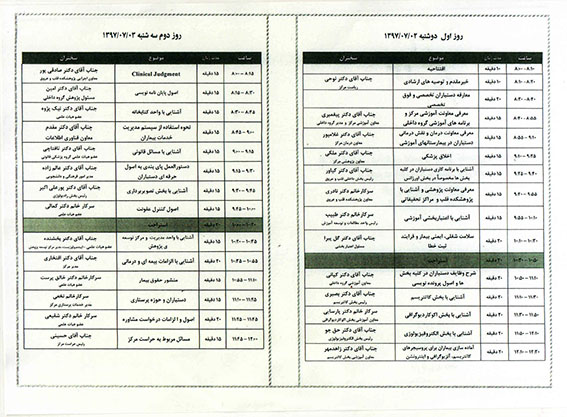 روز اول دوشنبه ۱۳۹۷/۰۷/۰۲
ساعت مدت زمان موضوع سخنران
۸:۰۰ - ۸:۱۰ ۱۰ دقیقه افتتاحیه
۸:۱۰ - ۸:۲۰ ۱۰ دقیقه خیرمقدم و توصیه های ارشادی جناب آقای دکتر نوحی
ریاست مرکز
۸:۲۰ - ۸:۴۰ ۲۰ دقیقه معارفه دستیاران تخصصی و فوق
تخصصی
۸:۴۰ - ۸:۵۵ ۱۵ دقیقه معرفی معاونت آموزشی مرکز و
برنامه های آموزشی گروه داخلی جناب آقای دکتر پیغمبری
معاون آموزشی مرکز و مدیر گروه داخلی
۸:۵۵ - ۹:۱۰ ۱۵ دقیقه معرفی معاونت درمان و نقش درمانی
دستیاران در بیمارستانهای آموزشی جناب آقای دکتر غلامپور
معاون درمان مرکز
۹:۱۰ - ۹:۲۵ ۱۵ دقیقه اخلاق پزشکی جناب آقای دکتر ملکی
معاون پژوهشی مرکز
۹:۲۵ - ۹:۴۰ ۱۵ دقیقه آشنایی با برنامه کاری دستیاران در کلیه
بخش ها خصوصاً در بخش اورژانس جناب آقای دکتر کیاور
رئیس بخش
۹:۴۰ - ۹:۵۵ ۱۵ دقیقه معرفی معاونت پژوهشی و آشنایی با
پژوهشکده قلب و مراکز تحقیقاتی سرکار خانم دکتر نادری
معاون پژوهشکده قلب و عروق
۹:۵۵ - ۱۰:۱۰ ۱۵ دقیقه آشنایی با اعتباربخشی آموزشی سرکار خانم دکتر طبیب
رئیس واحد مطالعات و توسعه آموزش
۱۰:۱۰ - ۱۰:۳۰ ۲۰ دقیقه سلامت شغلی، ایمنی بیمار و فرایند
ثبت خطا جناب آقای دکتر گل پیرا
مسئول اعتباربخشی
۱۰:۳۰ - ۱۰:۵۰ ۲۰ دقیقه استراحت
۱۰:۵۰ - ۱۱:۱۰ ۲۰ دقیقه شرح وظایف دستیاران در کلیه بخش
ها و اصول پرونده نویسی جناب آقای دکتر کیانی
معاون آموزشی گروه داخلی
۱۱:۱۰ - ۱۱:۳۰ ۲۰ دقیقه آشنایی با بخش کاتتریسم جناب آقای دکتر بصیری
رئیس بخش کاتتریسم
۱۱:۳۰ - ۱۱:۵۰ ۲۰ دقیقه آشنایی با بخش اکوکاردیوگرافی سرکار خانم دکتر پارسایی
معاون آموزشی بخش اکوکاردیوگرافی
۱۱:۵۰ - ۱۲:۱۰ ۲۰ دقیقه آشنایی با بخش الکتروفیزیولوژی جناب آقای دکتر حق جو
رئیس بخش الکتروفیزیولوژی
۱۲:۱۰ - ۱۲:۳۰ ۲۰ دقیقه آماده سازی بیماران برای پروسیجرهای
کاتتریسم، آنژیوگرافی و اینترونشن جناب آقای دکتر زاهدمهر
معاون آموزشی بخش کاتتریسم
روز دوم سه شنبه ۱۳۹۷/۰۷/۰۳
ساعت مدت زمان موضوع سخنران
۸:۰۰ - ۸:۱۵ ۱۵ دقیقه Clinical Judgment جناب آقای دکتر صادقی پور
معاون اجرایی پژوهشکده قلب و عروق
۸:۱۵ - ۸:۳۰ ۱۵ دقیقه اصول پایان نامه نویسی جناب آقای دکتر امین
مسئول پژوهش گروه داخلی
۸:۳۰ - ۸:۴۵ ۱۵ دقیقه آشنایی با واحد کتابخانه جناب آقای دکتر نیک پژوه
عضو هیات علمی
۸:۴۵ - ۹:۰۰ ۱۵ دقیقه نحوه استفاده از سیستم مدیریت
خدمات بیماران جناب آقای دکتر مقدم
معاون فناوری اطلاعات
۹:۰۰ - ۹:۱۵ ۱۵ دقیقه آشنایی با مسائل قانونی جناب آقای دکتر تافتاچی
عضو هیات علمی گروه پزشکی قانونی
۹:۱۵ - ۹:۳۰ ۱۵ دقیقه دستورالعمل پای بندی به اصول
حرفه ای دستیاران جناب آقای دکتر عالم زاده
مدیر امور فرهنگی و دانشجویی
۹:۳۰ - ۹:۴۵ ۱۵ دقیقه آشنایی با بخش تصویربرداری جناب آقای دکتر پورعلی اکبر
رئیس بخش رادیولوژی
۹:۴۵ - ۱۰:۰۰ ۱۵ دقیقه اصول کنترل عفونت سرکار خانم دکتر کمالی
عضو هیات علمی
۱۰:۰۰ - ۱۰:۲۰ ۲۰ دقیقه استراحت
۱۰:۲۰ - ۱۰:۳۵ ۱۵ دقیقه آشنایی با واحد مدیریت و مرکز توسعه
ی پژوهش جناب آقای دکتر بخشنده
۱۰:۳۵ - ۱۰:۵۵ ۲۰ دقیقه آشنایی با الزامات بیمه ای و درمانی جناب آقای دکتر افتخاری
مدیر مرکز
۱۰:۵۵ - ۱۱:۱۰ ۱۵ دقیقه منشور حقوق بیمار سرکارخانم دکتر خالق پرست
عضو هیات علمی
۱۱:۱۰ - ۱۱:۲۵ ۱۵ دقیقه دستیاران و حوزه پرستاری سرکارخانم نخعی
مدیر خدمات پرستاری مرکز
۱۱:۲۵ - ۱۱:۴۵ ۲۰ دقیقه اصول و الزامات درخواست مشاوره سرکار خانم دکتر شفیعی
عضو هیات علمی
۱۱:۴۵ - ۱۲:۰۰ ۱۵ دقیقه مسائل مربوط به حراست مرکز جناب آقای حسینی
رئیس حراست مرکز